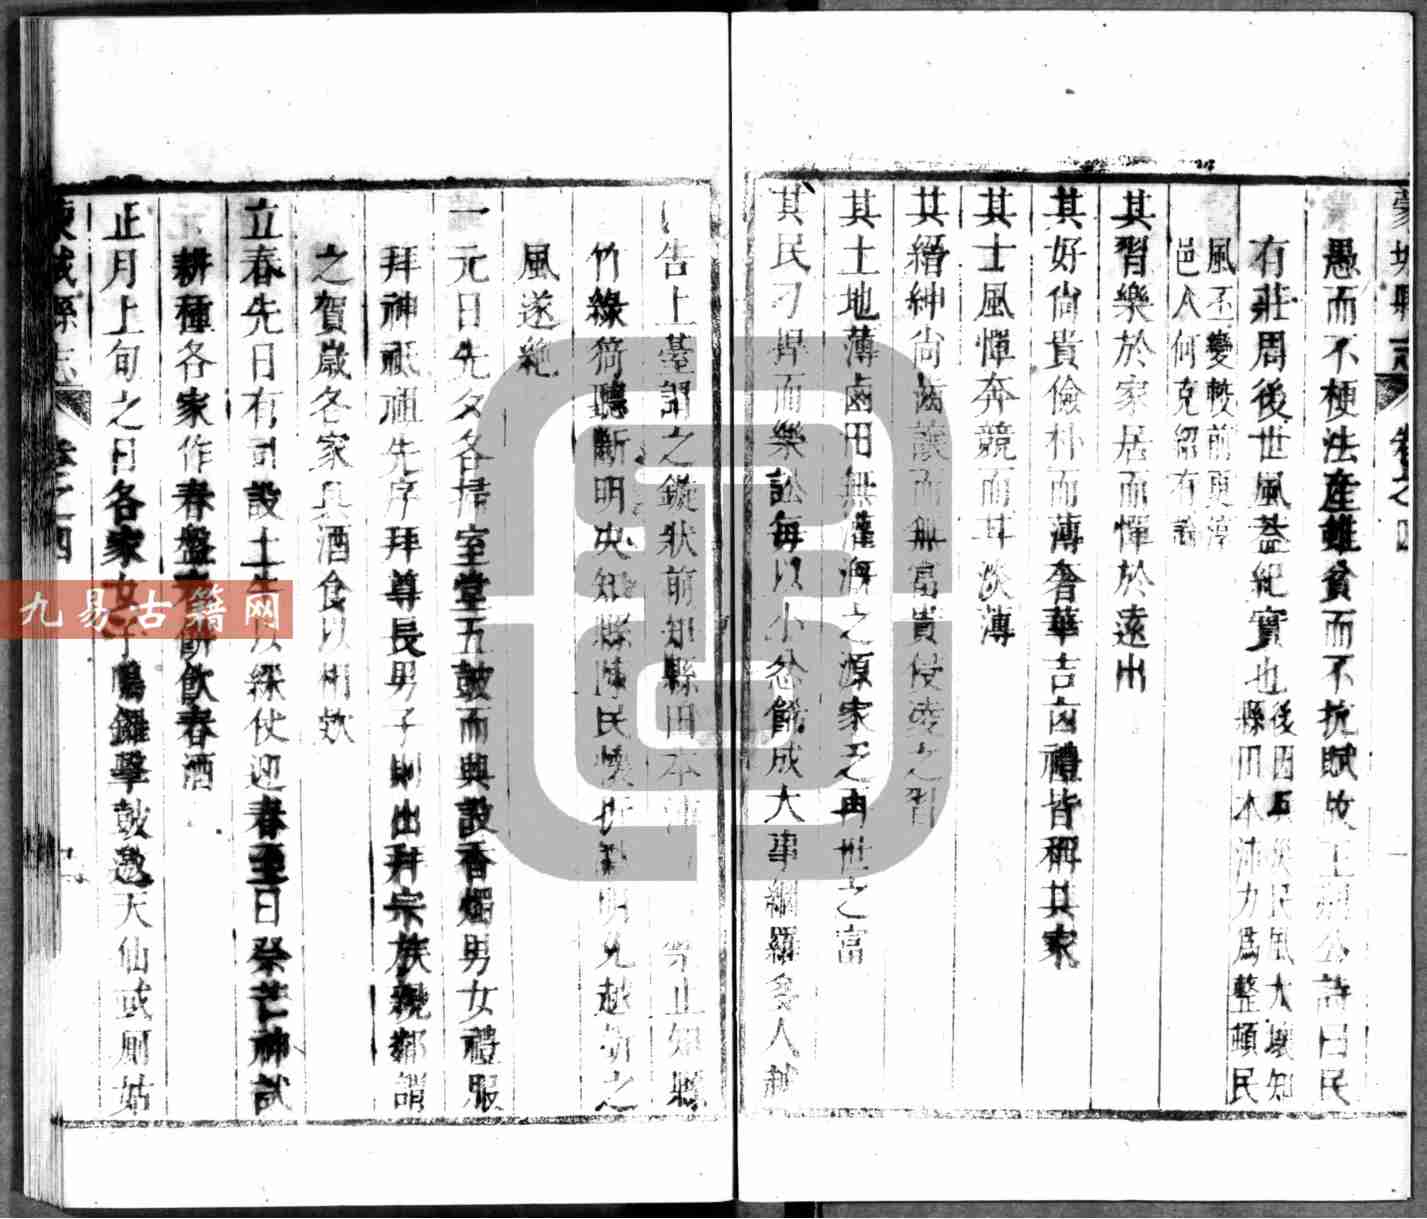 蒙城縣志 卷之四
愚而不梗法產雖貧而不抗賦故王荊公詩曰民
有莊周後世風蓋紀實也後因五災民風大壞知
縣田本沛力為整頓民
風丕變較前更淳
邑人何克紹有論
其習樂於家居而憚於遠出
其好尚貴儉朴而薄奢華吉凶禮皆稱其家
其士風憚奔競而耳淡薄
其縉紳尚齒讓而無富貴侵凌之習
其土地薄鹵田無灌溉之源家乏再世之富
其民刁捍而樂訟每以小忿餙成大事網羅多人越
告上臺謂之鑽狀前知縣田本沛 禁止知縣
竹綠猗聽斷明決知縣陳民懷折獄明允越訴之
風遂絕
一元日先夕各掃室堂五鼓而興設香燭男女禮服
拜神祇祖先序拜尊長男子則出拜宗族親鄰謂
之賀歲各家具酒食以相欵
立春先日有司設土牛以綵仗迎春至日祭芒神試
耕種各家作春盤春餅飲春酒
正月上旬之日各家女子鳴鑼擊鼓邀天仙或廁姑
蒙城縣志 卷之四
九易古籍网